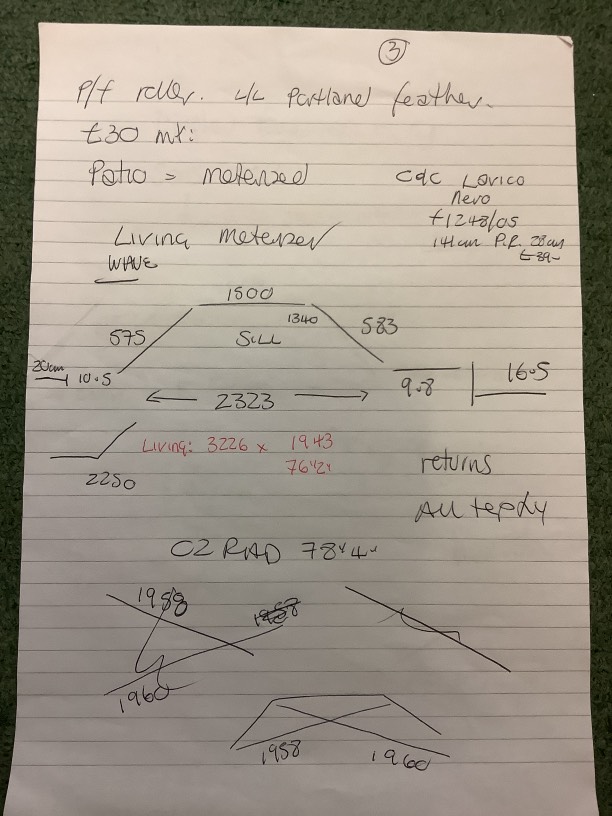 3
P/f roller. L/L Portland feather.
£30 mt:
Patio = materized
CQC Lovico
Nero
£1248/05
141cm P.R. 28cm
£89-
Living
WAVE
1500
575
1340
583
SILL
20cm
10.5
9.8
16.5
2323
Living: 3226 x 1943
2250
returns
All
OZ RAD
1958
1958
1960
1958
1960